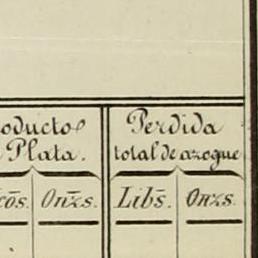 oducto
Plata.
cōs. Onz̄s.
Perdida
total de azogue
Lib̄s. Onzs.